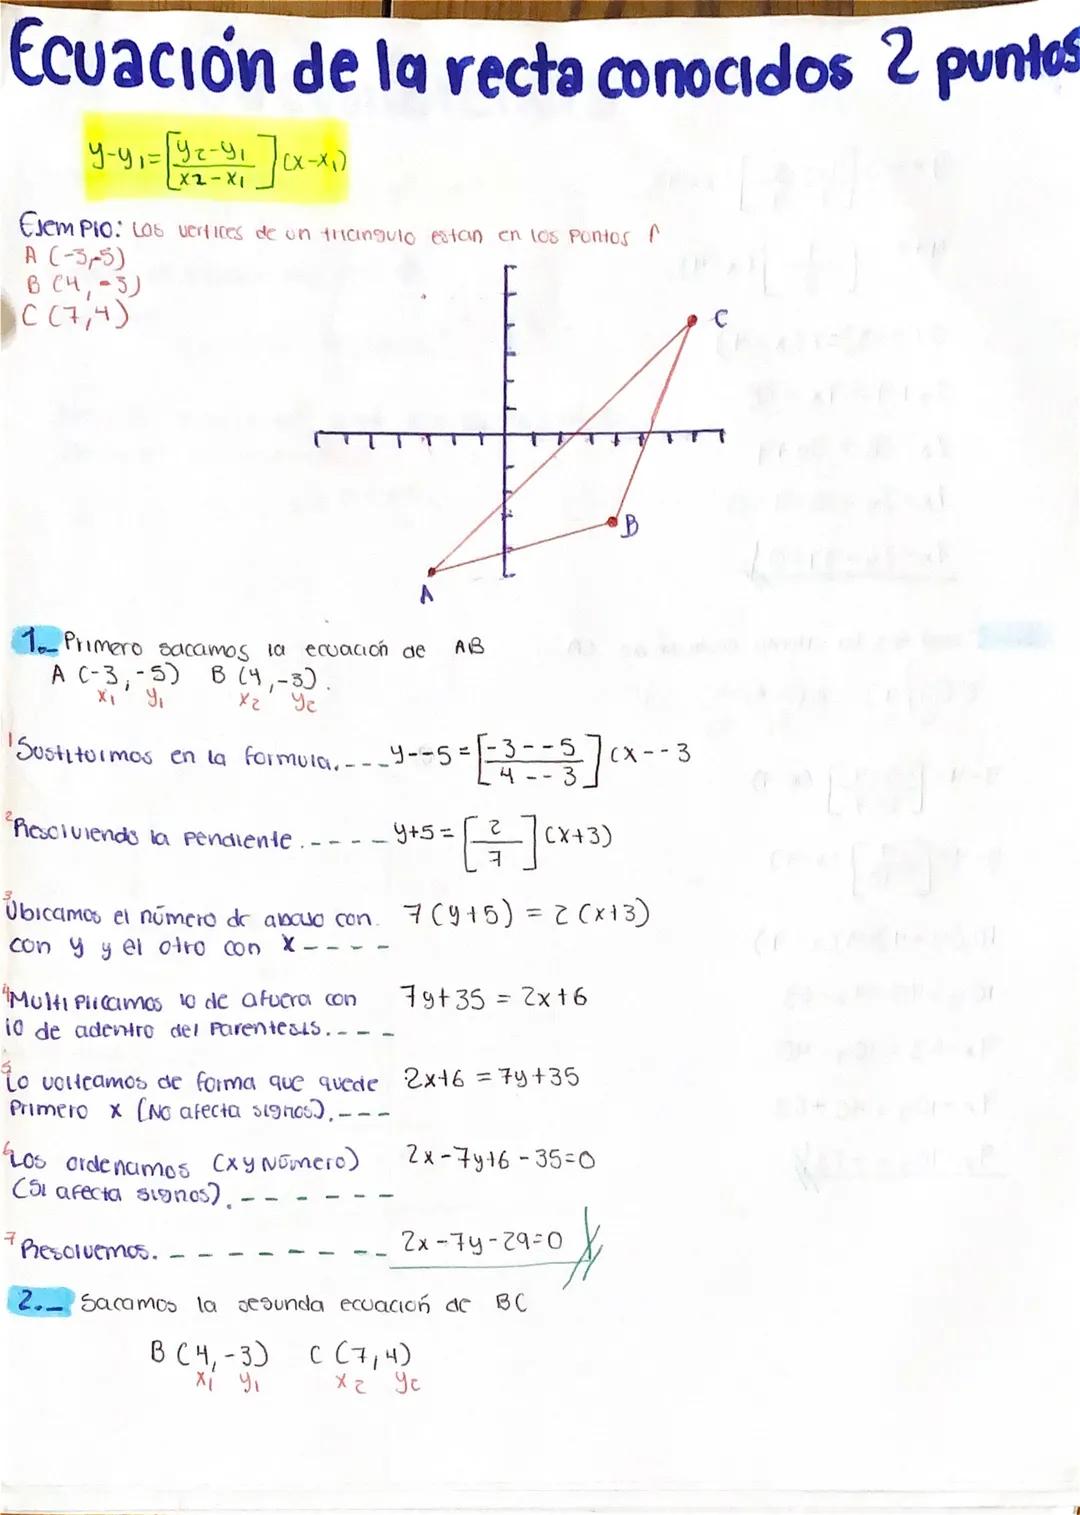 Ecuación de la recta conocidos 2 puntos
y-y₁=[y₂-y₁/x2-x₁](x-x₁)
Ejemplo: Los vertices de un triangulo estan en los puntos
A (-3,-5)
B (4,-3)
C (7,4)
C
B
A
1.- Primero sacamos la ecuación de AB
A (-3,-5) B (4,-3).
x₁ y₁ x₂ y₂
1 Sustituimos en la formula.---y--5=[-3--5/4--3](x--3
2 Resolviendo la pendiente.----y+5=[2/7](x+3)
3 Ubicamos el número de abajo con. 7(y+5) = 2(x+3)
con y y el otro con x----
4 Multiplicamos lo de afuera con 7y+35 = 2x+6
lo de adentro del parentesis.---
5 Lo volteamos de forma que quede 2x+6 = 7y+35
primero x (No afecta signos).---
6 Los ordenamos (xy Número) 2x-7y+6-35=0
(Si afecta signos).------
7 Resolvemos.-------- 2x-7y-29=0
2.- Sacamos la segunda ecuación de BC
B (4,-3) C (7,4)
x₁ y₁ x₂ y₂